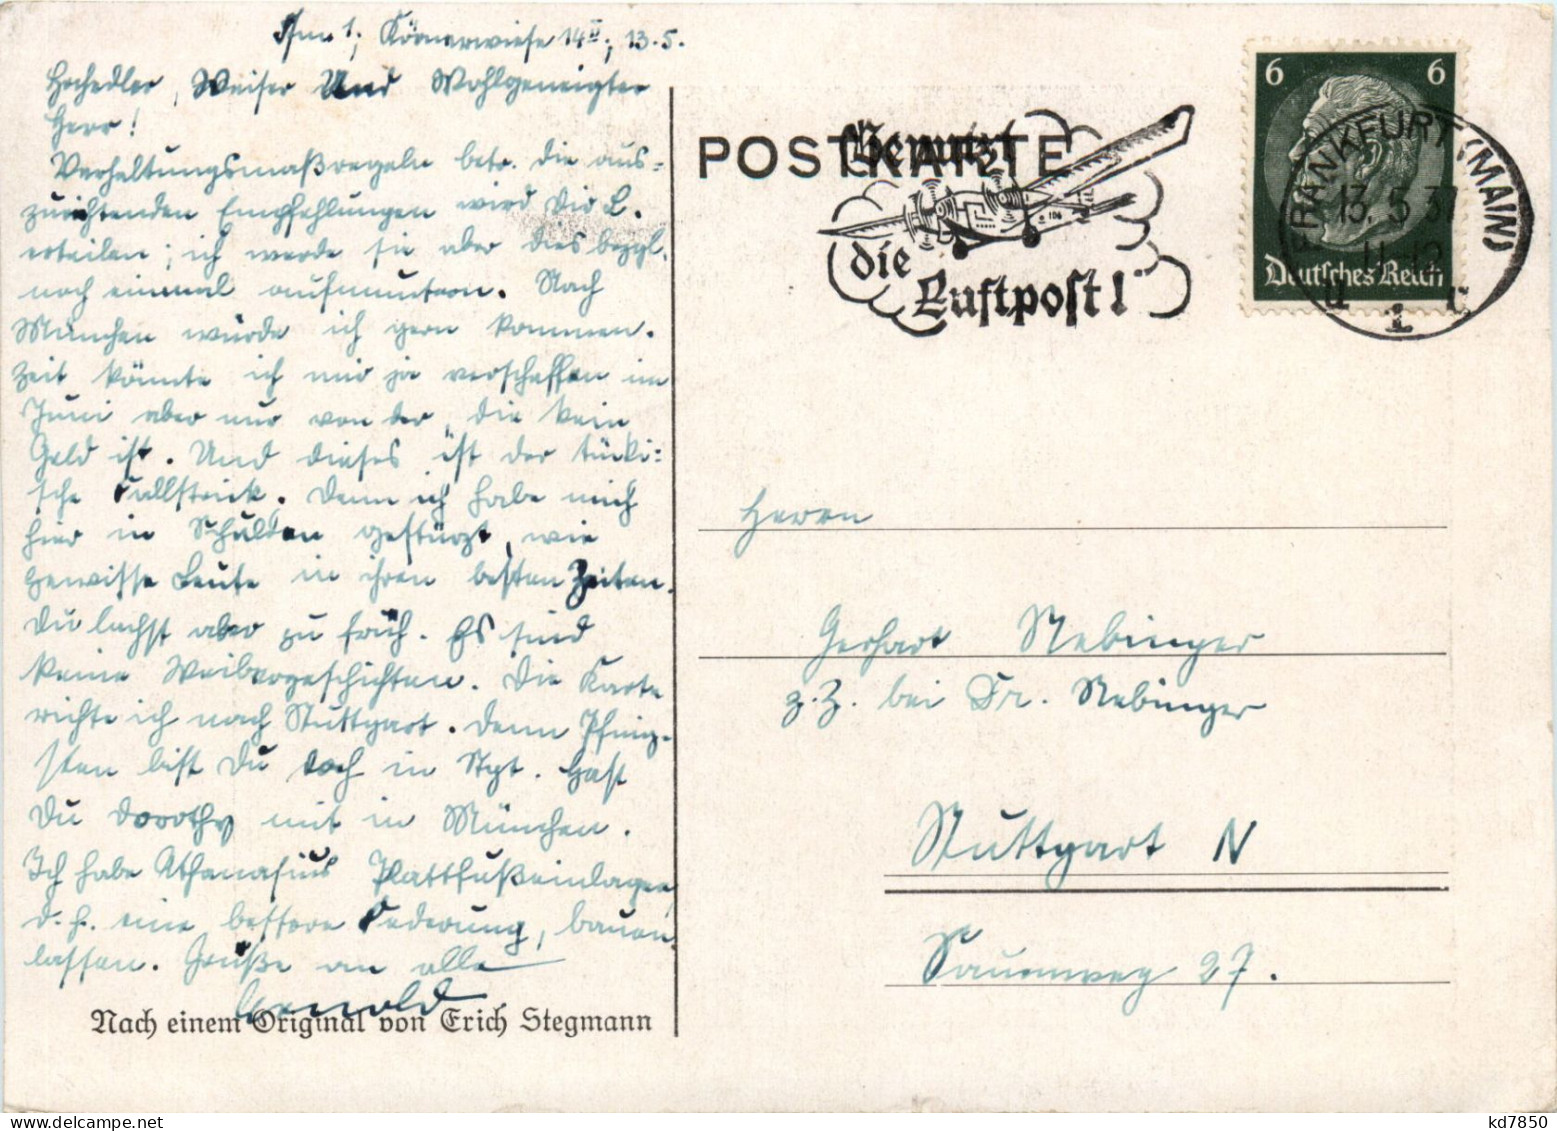 Ffm 1, Körnerwiese 14 II, 13.5.
Hochedler, Weiser Und Wohlgeneigter
Herr!
Verhaltungsmaßregeln betr. die aus-
zurichtenden Empfehlungen wird Dir L.
erteilen; ich werde sie aber dies bezgl.
noch einmal aufmuntern. Nach
München würde ich gern kommen.
Zeit könnte ich mir ja verschaffen im
Juni aber nur von der, die kein
Geld ist. Und dieses ist der tücki-
sche Fallstrick. Denn ich habe mich
hier in Schulden gestürzt, wie
gewisse Leute in ihren besten Zeiten.
Du lachst aber zu früh. Es sind
keine Weibergeschichten. Die Karte
richte ich nach Stuttgart. Denn Pfing-
sten bist Du doch in Stgt. Hast
Du Dorothy mit in München.
Ich habe Athanasius Plattfußeinlagen,
d.h. eine bessere Federung, bauen
lassen. Grüße an alle
Arnold
Nach einem Original von Erich Stegmann
POSTKARTE
Benutzt
die
Luftpost!
6 6
Deutsches Reich
FRANKFURT (MAIN)
13. 5 37
11-12
1
Herrn
Gerhart Nebinger
z.Z. bei Dr. Nebinger
Stuttgart N
Sauerweg 27.
kd7850